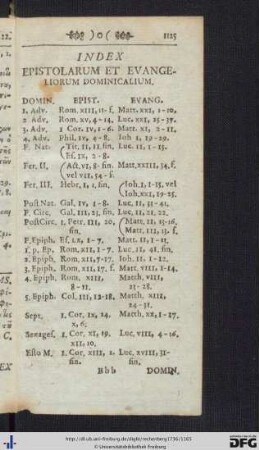 )o( 1125
INDEX
EPISTOLARUM ET EVANGE-
LIORUM DOMINICALIUM.
DOMIN. EPIST. EVANG.
1. Adv. Rom. XIII, 11- f. Matt. XXI, 1-10,
2 Adv. Rom. XV, 4-14. Luc. XXI, 25-37.
3. Adv. 1 Cor. IV, 1-6. Matt. XI, 2-11.
4. Adv. Phil. IV, 4-8. Joh 1, 19-29.
F. Nat. Tit. II, 11, fin. Luc. II, 1-15.
Ef. IX, 2-8.
Fer. II, Act. VI, 8- fin. Matt, XXIII, 34, f.
vel VII, 54- f.
Fer. III, Hebr. I, 1, fin, Joh I, 1-15, vel
Joh. XXI, 19-25.
Post Nat. Gal. IV, 1-8. Luc. II, 33-41.
F. Circ. Gal. III, 23, fin, Luc. II, 21, 22.
PostCirc. 1. Petr. III, 20, Matt. II, 13-16,
fin, Matt, III, 13- f.
F. Epiph. Ef. LX, 1-7. Matt. II, 1-13.
1. p. Ep. Rom. XII, 1-7. Luc. II, 41, fin.
2. Epiph. Rom. XII, 7-17. Joh. II, 1-12.
3. Epiph. Rom. XII, 17, f. Matt. VIII, 1-14.
4. Epiph. Rom. XIII, Matth. VIII,
8-11. 23-28.
5. Epiph. Col. III, 12-18, Matth. XIII,
24-31.
Sept. 1. Cor. IX, 24, Matth. XX, 1-17.
X, 6;
Sexages. 1. Cor. XI, 19, Luc. VIII, 4-16.
XII, 10,
Esto M. 1. Cor. XIII, 1, Luc. XVIII, 31-
fin. fin.
Bbb DOMIN.
http://dl.ub.uni-freiburg.de/diglit/rechenberg1736/1183
© Universitätsbibliothek Freiburg
gefördert durch DFG